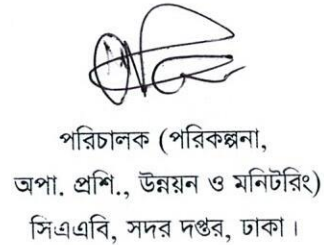 পরিচালক (পরিকল্পনা,
অপা. প্রশি., উন্নয়ন ও মনিটরিং)
সিএএবি, সদর দপ্তর, ঢাকা।